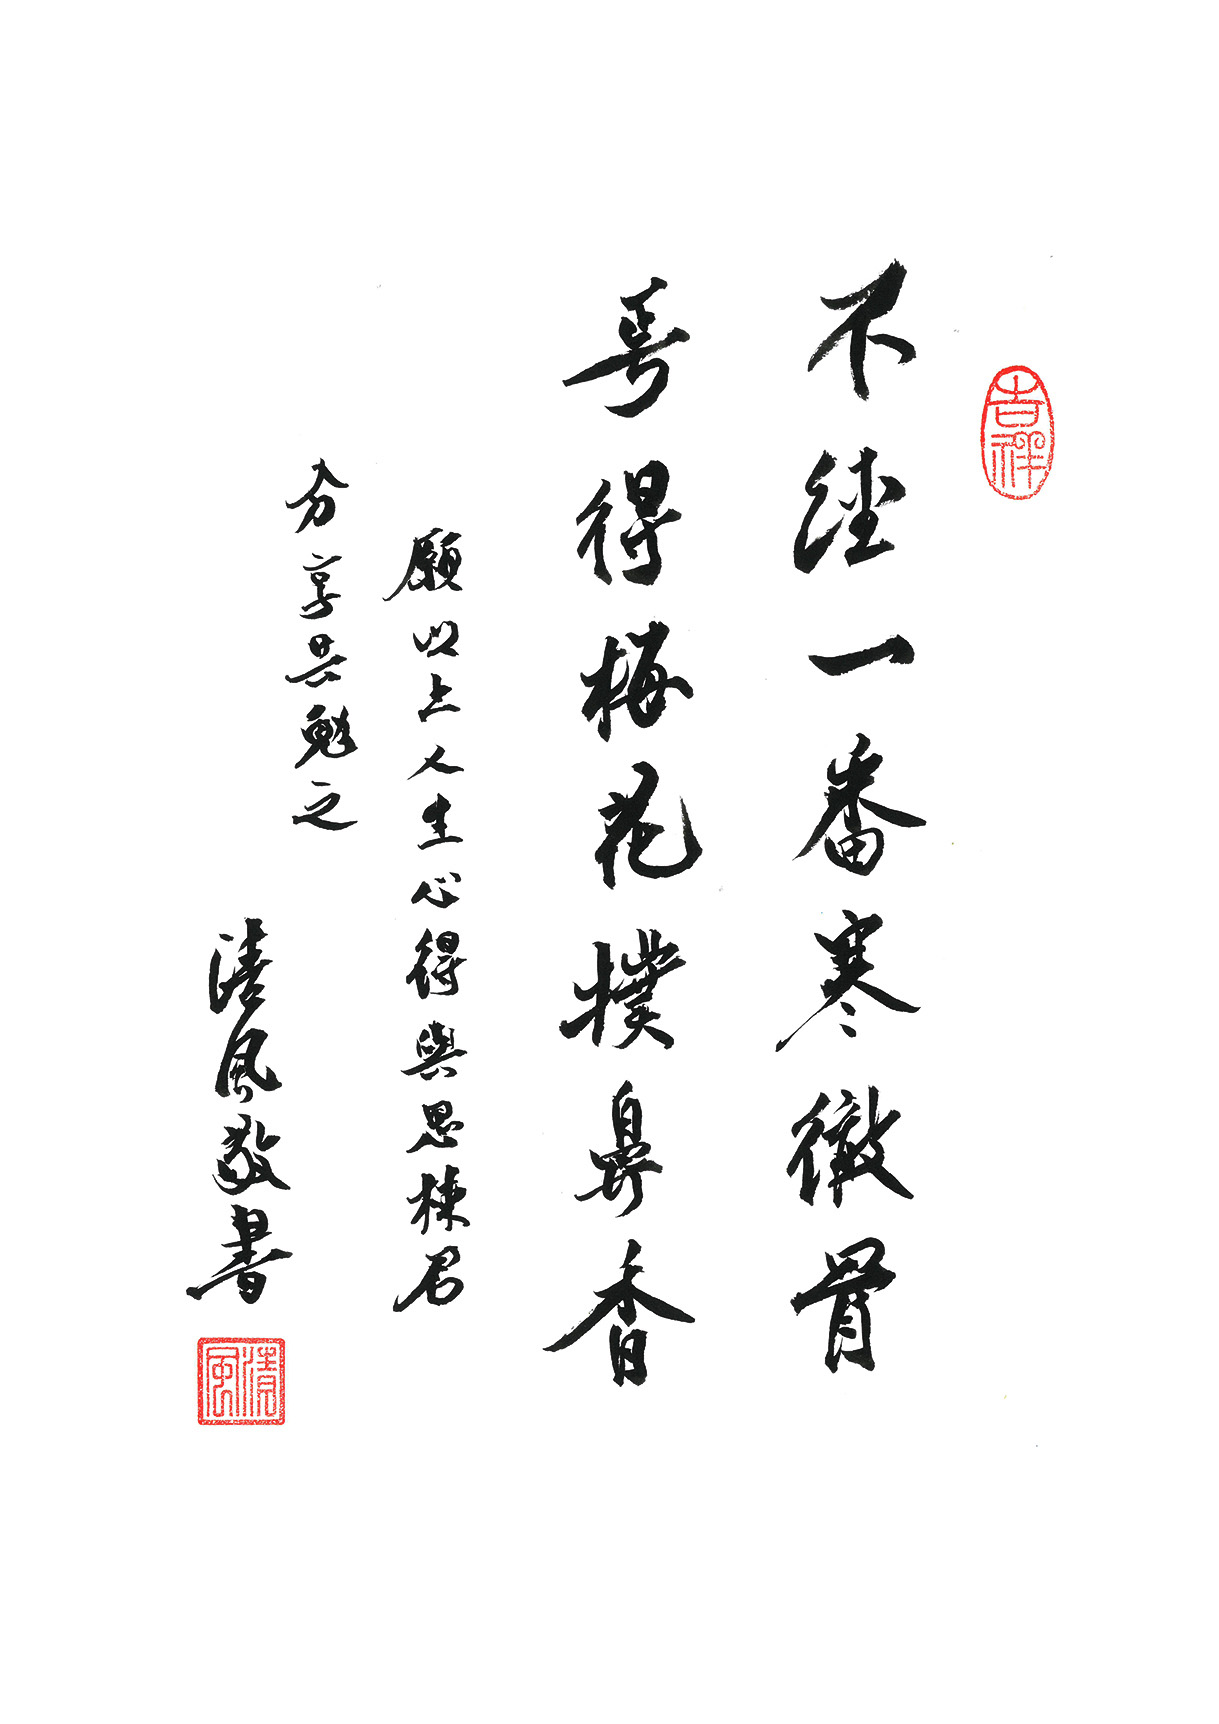 吉祥
不經一番寒徹骨
焉得梅花撲鼻香
願以上人生心得與思棟君
分享共勉之
清風敬書
清風